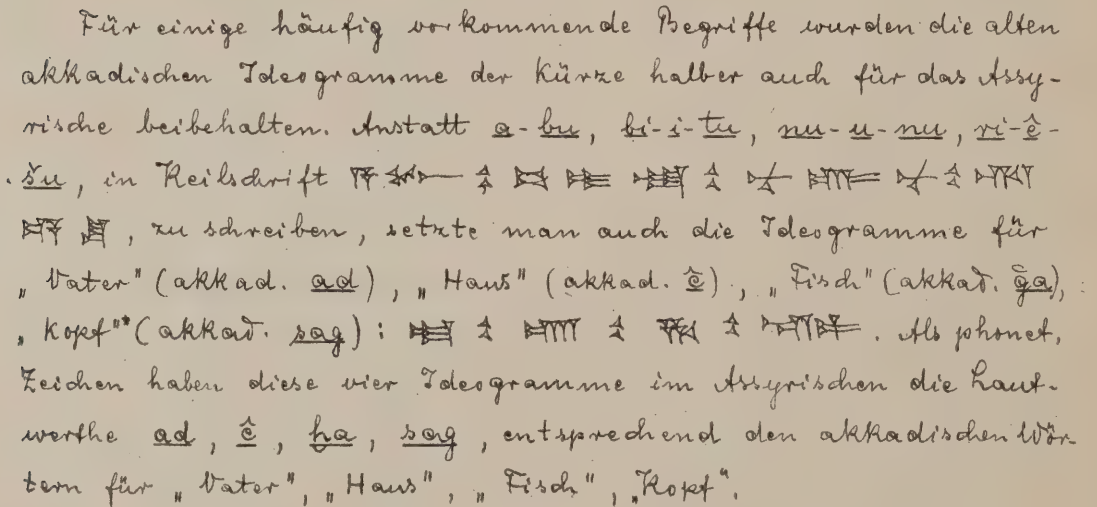 Für einige häufig vorkommende Begriffe wurden die alten
akkadischen Ideogramme der Kürze halber auch für das Assy-
rische beibehalten. Anstatt a-bu, bi-i-tu, nu-u-nu, ri-ê-
šu, in Keilschrift
, zu schreiben, setzte man auch die Ideogramme für
„Vater" (akkad. ad), „Haus" (akkad. ê), „Fisch" (akkad. ĝa),
„Kopf" (akkad. sag): . Als phonet.
Zeichen haben diese vier Ideogramme im Assyrischen die Laut-
werthe ad, ê, ḫa, sag, entsprechend den akkadischen Wör-
tern für „Vater", „Haus", „Fisch", „Kopf".